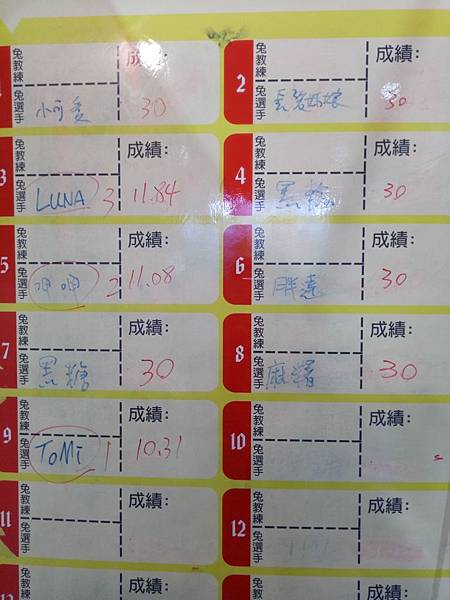 1 兔教練 成績:
兔選手 小可愛 30
2 兔教練 成績:
兔選手 長髮姑娘 30
3 兔教練 成績:
兔選手 LUNA 3 11.84
4 兔教練 成績:
兔選手 黑輪 30
5 兔教練 成績:
兔選手 呷呷 2 11.08
6 兔教練 成績:
兔選手 胖達 30
7 兔教練 成績:
兔選手 黑糖 30
8 兔教練 成績:
兔選手 麻糬 30
9 兔教練 成績:
兔選手 TOMI 1 10.31
10 兔教練 成績:
兔選手
11 兔教練 成績:
兔選手
12 兔教練 成績:
兔選手
兔 成績:
兔 成績: